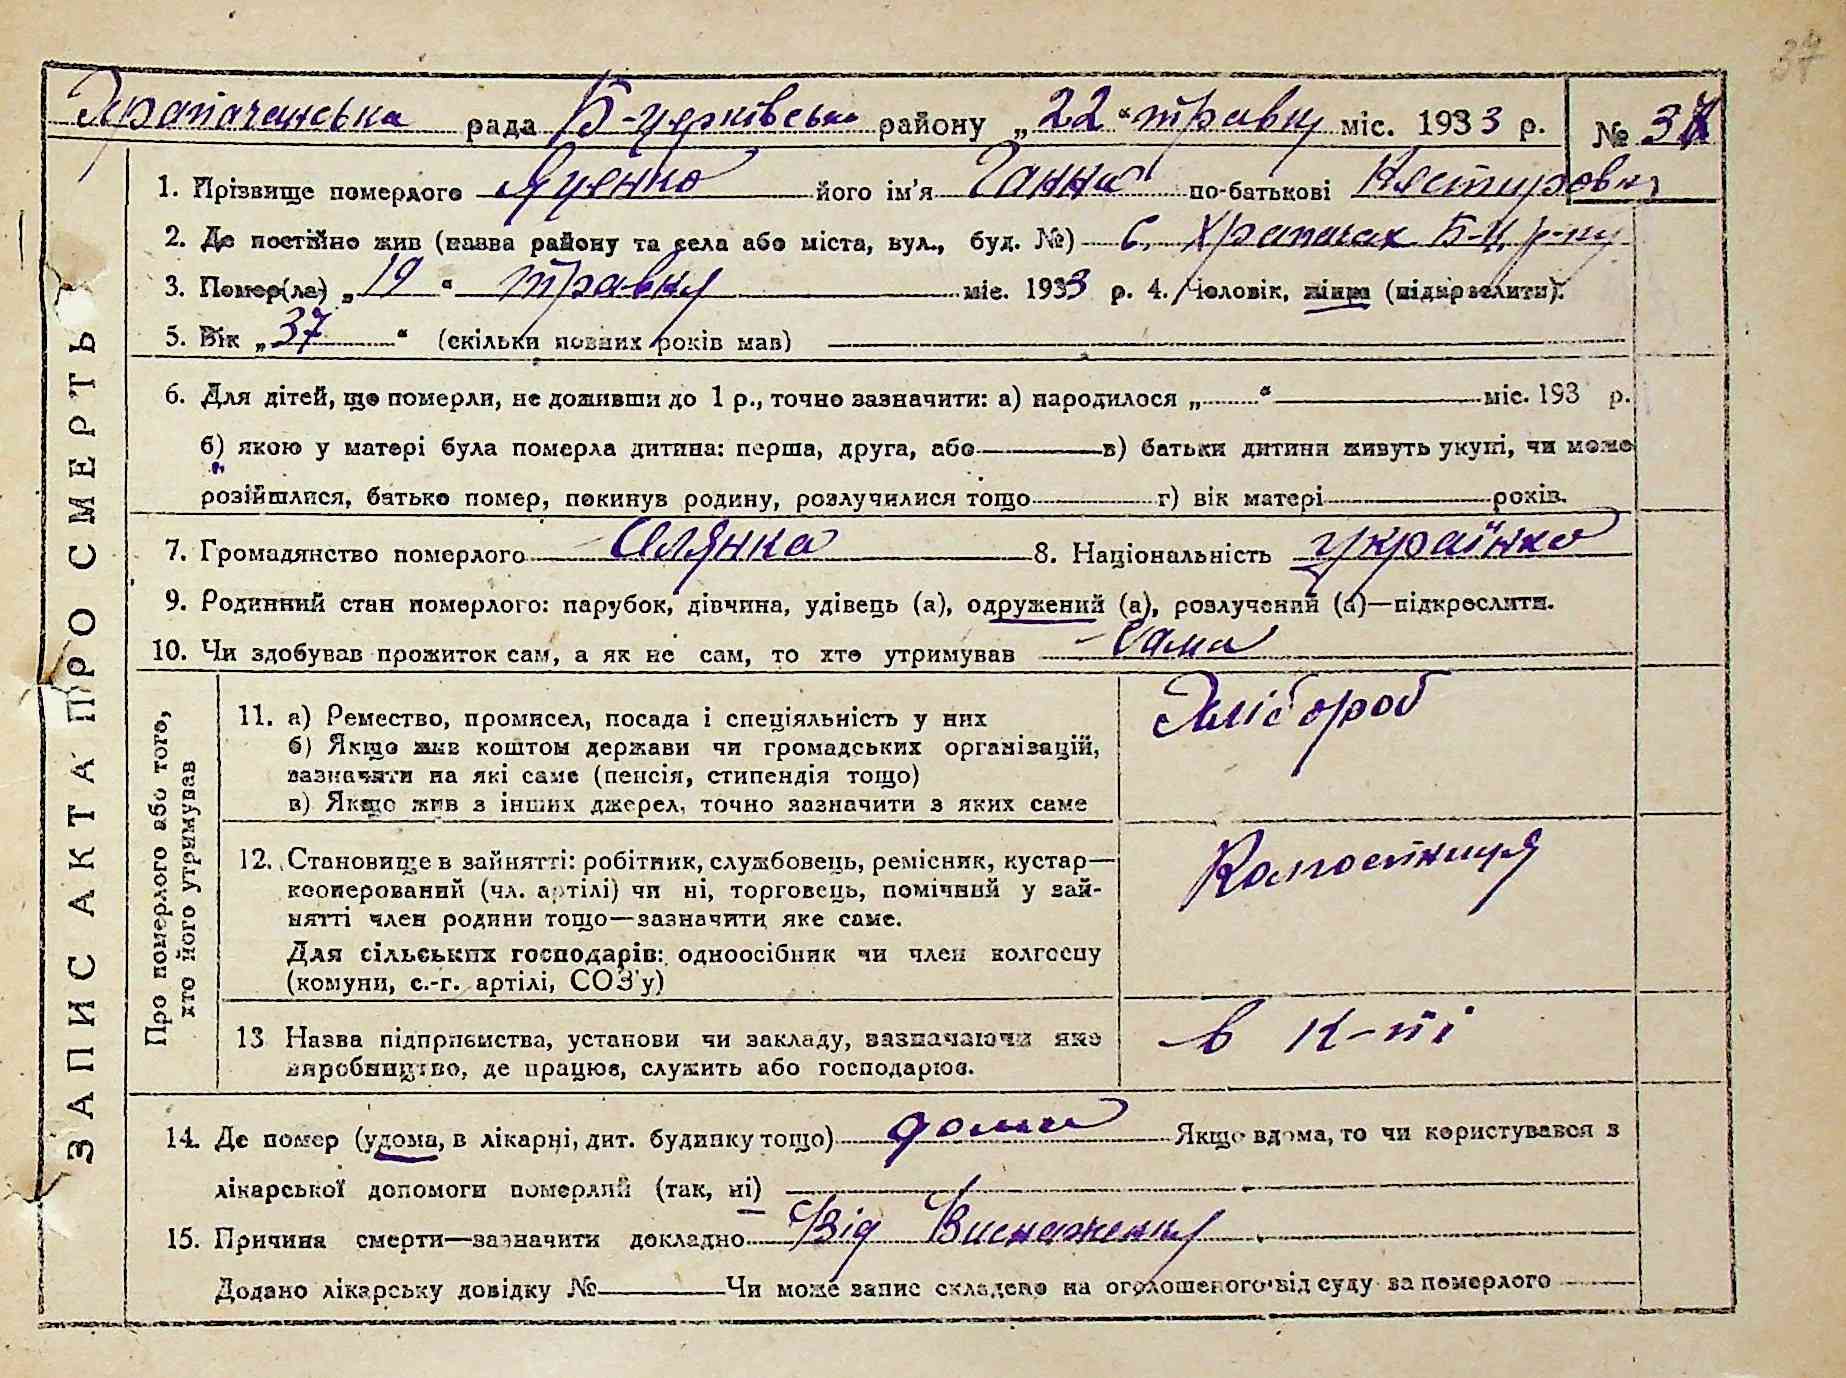 37
Храпачанська рада Б-церківськ району „22“ травня міс. 1933 р. № 37
1. Прізвище померлого Яценко його ім’я Ганна по-батькові Нестуровна
2. Де постійно жив (назва району та села або міста, вул., буд. №) с. Храпачах Б-Ц р-ну
3. Помер(ла) „19“ травня міс. 1933 р. 4. Чоловік, жінка (підкреслити).
5. Вік „37“ (скільки повних років мав)
6. Для дітей, що померли, не доживши до 1 р., точно зазначити: а) народилося „ “ міс. 193 р.
б) якою у матері була померла дитина: перша, друга, або в) батьки дитини живуть укупі, чи може
розійшлися, батько помер, покинув родину, розлучилися тощо г) вік матері років.
7. Громадянство померлого Селянка 8. Національність українка
9. Родинний стан померлого: парубок, дівчина, удівець (а), одружений (а), розлучений (а)—підкреслити.
10. Чи здобував прожиток сам, а як не сам, то хто утримував Сама
ЗАПИС АКТА ПРО СМЕРТЬ
Про померлого або того,
хто його утримував
11. а) Ремество, промисел, посада і спеціяльність у них
б) Якщо жив коштом держави чи громадських організацій,
зазначити на які саме (пенсія, стипендія тощо)
в) Якщо жив з інших джерел, точно зазначити з яких саме
Хлібороб
12. Становище в зайнятті: робітник, службовець, ремісник, кустар—
кооперований (чл. артілі) чи ні, торговець, помічний у зай-
нятті член родини тощо—зазначити яке саме.
Для сільських господарів: одноосібник чи член колгоспу
(комуни, с.-г. артілі, СОЗ’у)
Колгоспниця
13 Назва підприємства, установи чи закладу, зазначаючи яке
виробництво, де працює, служить або господарює.
в к-пі
14. Де помер (удома, в лікарні, дит. будинку тощо) дома Якщо вдома, то чи користувався з
лікарської допомоги померлий (так, ні)
15. Причина смерти—зазначити докладно Від Виснаження
Додано лікарську довідку № Чи може запис складено на оголошеного від суду за померлого